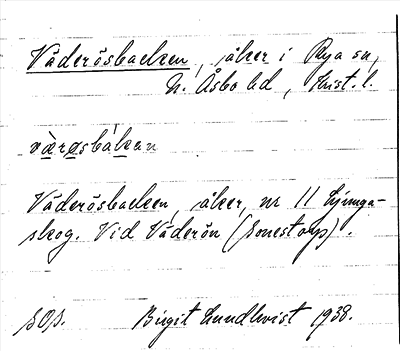 Väderösbacken, åker i Rya sn,
N. Åsbo hd, Krist. l.
væ̀rəsbákan
Väderösbacken, åker, nr 11 Ljunga-
skog. Vid Väderön (Bonestorp).
Birgit Lundkvist 1938.